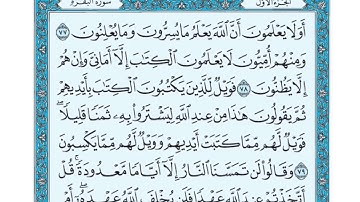 الجزء الأول سورة البقرة
أَوَلَا يَعْلَمُونَ أَنَّ ٱللَّهَ يَعْلَمُ مَا يُسِرُّونَ وَمَا يُعْلِنُونَ ٧٧
وَمِنْهُمْ أُمِّيُّونَ لَا يَعْلَمُونَ ٱلْكِتَٰبَ إِلَّآ أَمَانِىَّ وَإِنْ هُمْ
إِلَّا يَظُنُّونَ ٧٨ فَوَيْلٌ لِّلَّذِينَ يَكْتُبُونَ ٱلْكِتَٰبَ بِأَيْدِيهِمْ
ثُمَّ يَقُولُونَ هَٰذَا مِنْ عِندِ ٱللَّهِ لِيَشْتَرُوا۟ بِهِۦ ثَمَنًا قَلِيلًا ۖ
فَوَيْلٌ لَّهُم مِّمَّا كَتَبَتْ أَيْدِيهِمْ وَوَيْلٌ لَّهُم مِّمَّا يَكْسِبُونَ
٧٩ وَقَالُوا۟ لَن تَمَسَّنَا ٱلنَّارُ إِلَّآ أَيَّامًا مَّعْدُودَةً ۚ قُلْ
أَتَّخَذْتُمْ عِندَ ٱللَّهِ عَهْدًا فَلَن يُخْلِفَ ٱللَّهُ عَهْدَهُۥٓ ۖ أَمْ